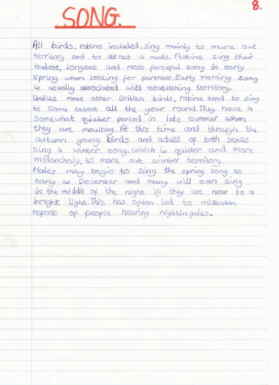 8.
SONG.
All birds, robins included, sing mainly to mark out
territory and to attract a mate. Robins sing their
loudest, longest and most forceful song in early
spring when looking for partners. Early morning song
is usually associated with establishing territory.
Unlike most other British birds, robins tend to sing
to some extent all the year round. They have a
somewhat quieter period in late summer when
they are moulting. At this time and through the
autumn young birds and adults of both sexes
sing a winter song, which is quieter and more
melancholy, to mark out winter territory.
Males may begin to sing the spring song as
early as December and many will even sing
in the middle of the night if they are near to a
bright light. This has often led to mistaken
reports of people hearing nightingales.